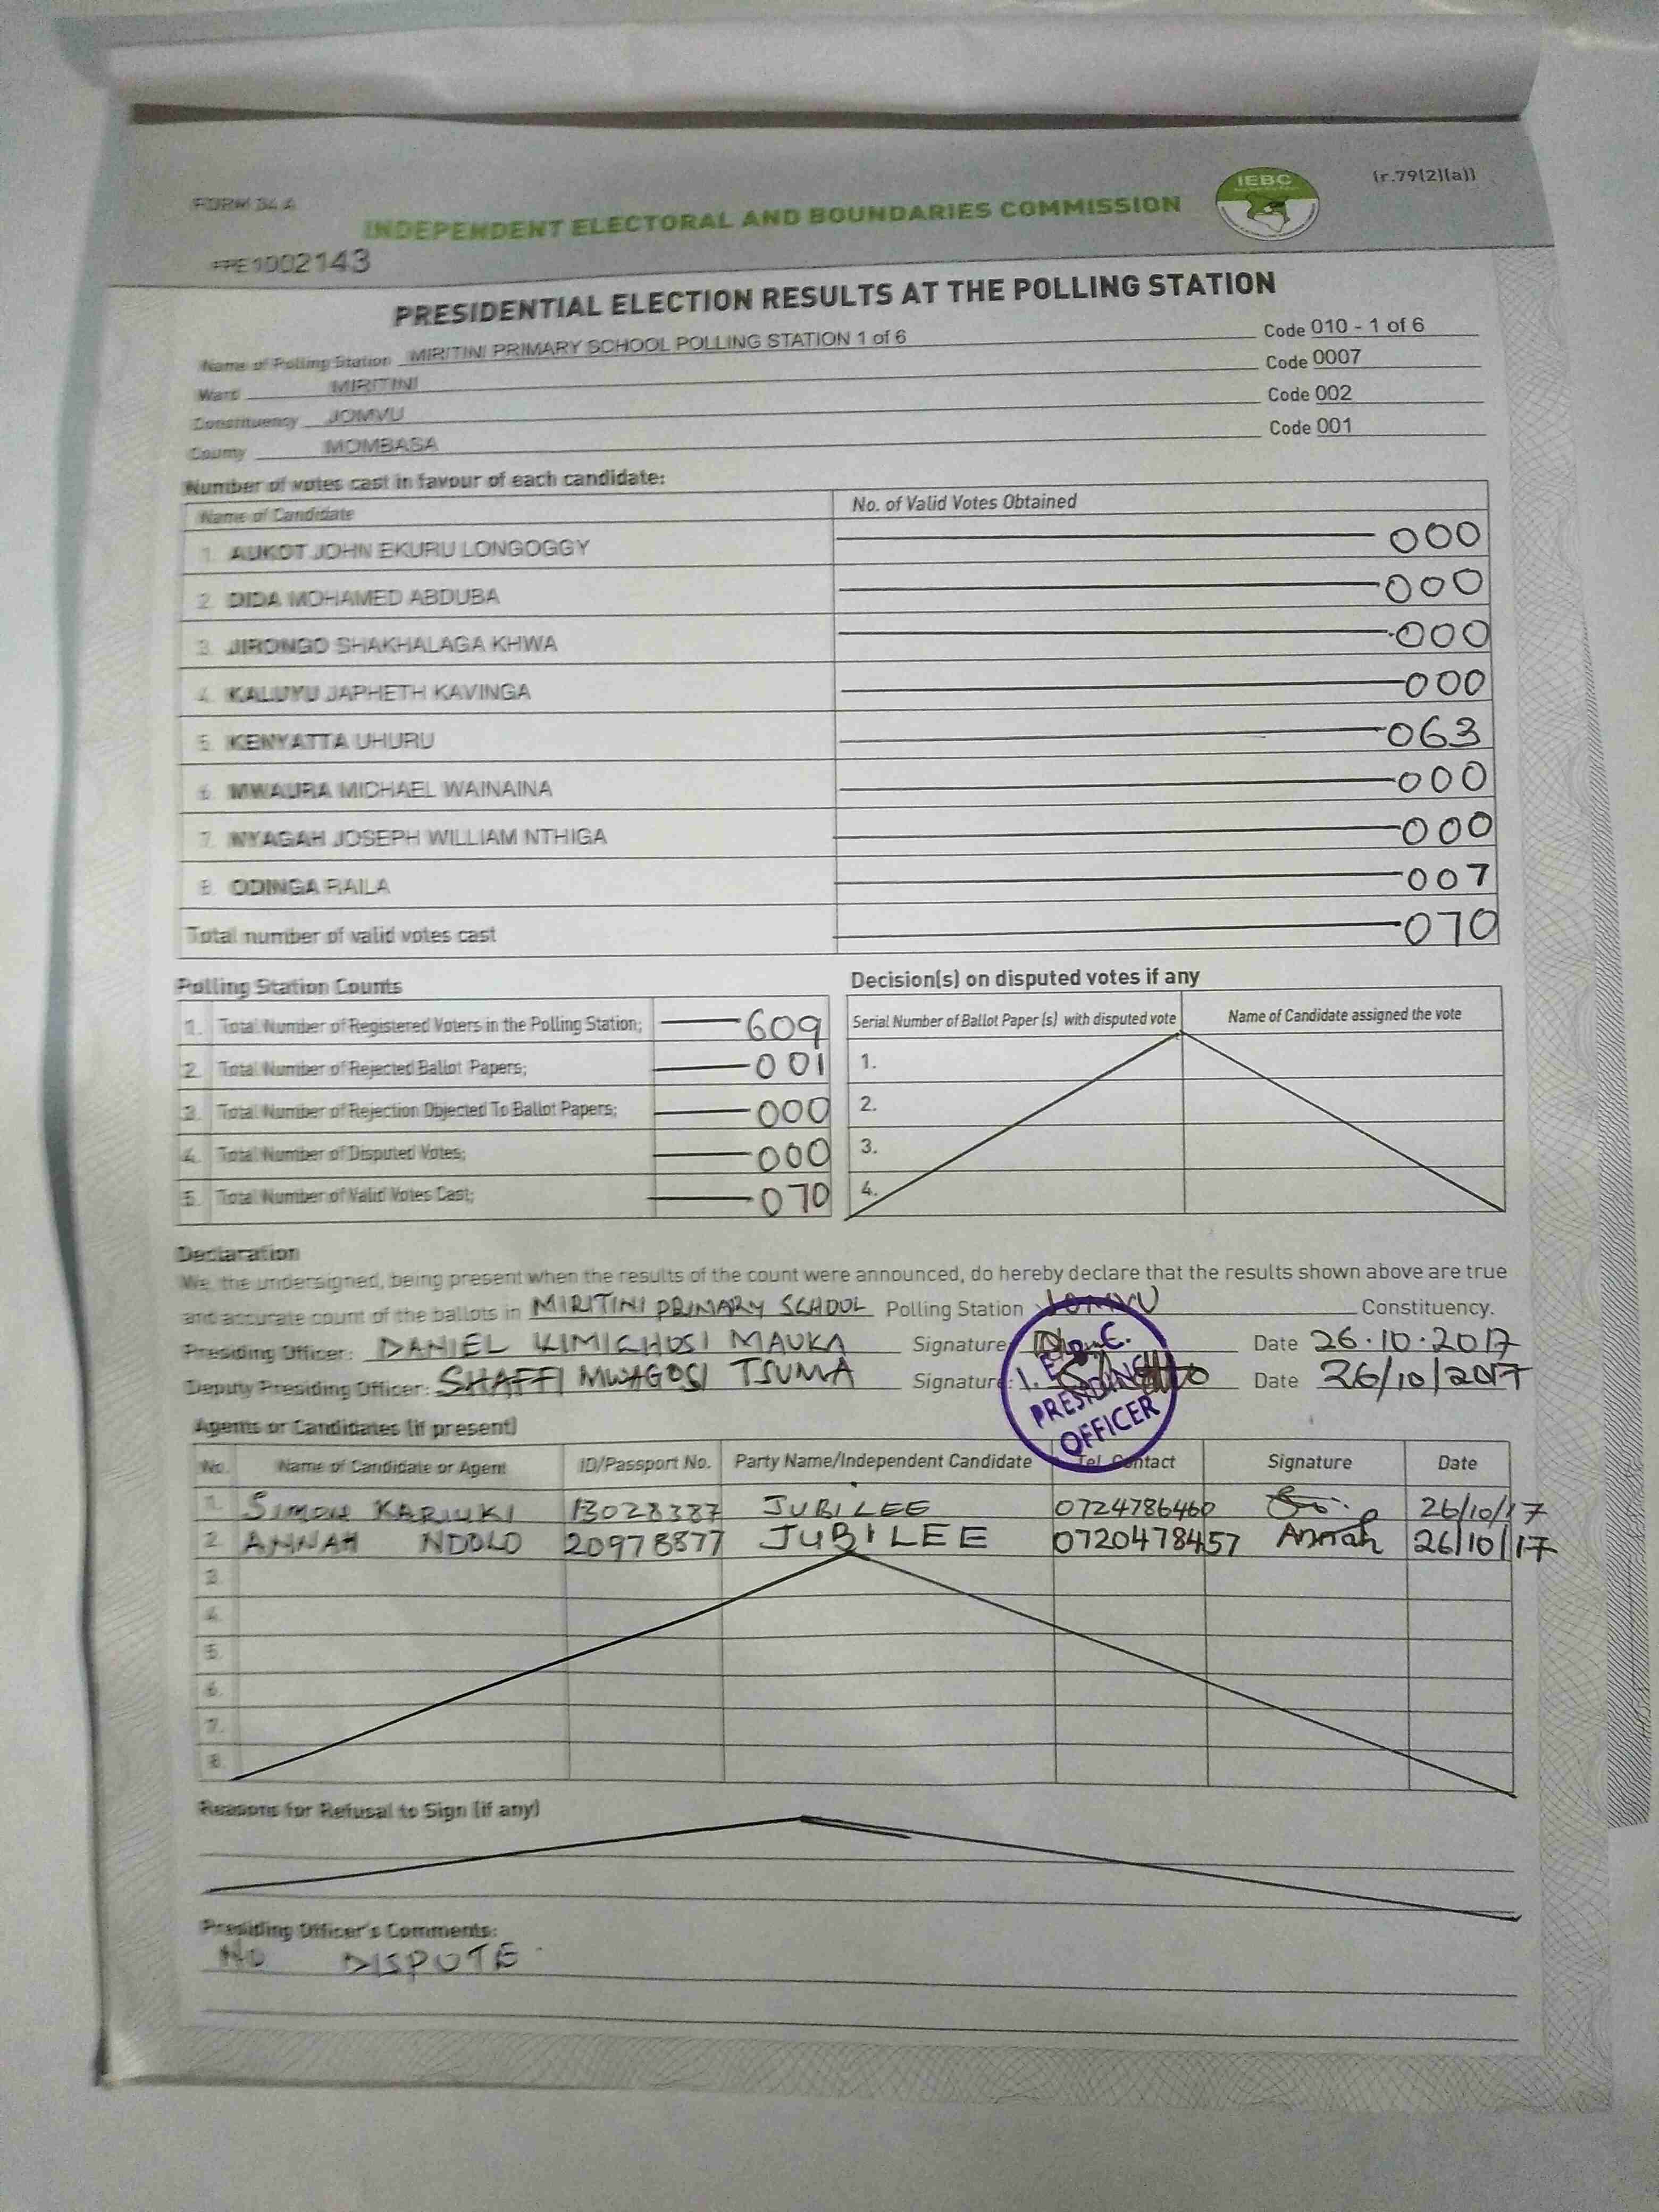 FORM 34 A
INDEPENDENT ELECTORAL AND BOUNDARIES COMMISSION
IEBC
(r.79(2)(a))
PE1002143
PRESIDENTIAL ELECTION RESULTS AT THE POLLING STATION
Name of Polling Station MIRITINI PRIMARY SCHOOL POLLING STATION 1 of 6 Code 010 - 1 of 6
Ward MIRITINI Code 0007
Constituency JOMVU Code 002
County MOMBASA Code 001
Number of votes cast in favour of each candidate:
Name of Candidate No. of Valid Votes Obtained
1. AUKOT JOHN EKURU LONGOGGY 000
2. DIDA MOHAMED ABDUBA 000
3. JIRONGO SHAKHALAGA KHWA 000
4. KALUYU JAPHETH KAVINGA 000
5. KENYATTA UHURU 063
6. MWAURA MICHAEL WAINAINA 000
7. NYAGAH JOSEPH WILLIAM NTHIGA 000
8. ODINGA RAILA 007
Total number of valid votes cast 070
Polling Station Counts
1. Total Number of Registered Voters in the Polling Station; 609
2. Total Number of Rejected Ballot Papers; 001
3. Total Number of Rejection Objected To Ballot Papers; 000
4. Total Number of Disputed Votes; 000
5. Total Number of Valid Votes Cast; 070
Decision(s) on disputed votes if any
Serial Number of Ballot Paper (s) with disputed vote Name of Candidate assigned the vote
1.
2.
3.
4.
Declaration
We, the undersigned, being present when the results of the count were announced, do hereby declare that the results shown above are true
and accurate count of the ballots in MIRITINI PRIMARY SCHOOL Polling Station JOMVU Constituency.
Presiding Officer: DANIEL KIMICHOSI MAUKA Signature Date 26.10.2017
Deputy Presiding Officer: SHAFFI MWAGOSI TSUMA Signature: Date 26/10/2017
I.E.B.C.
PRESIDING
OFFICER
Agents or Candidates (if present)
No. Name of Candidate or Agent ID/Passport No. Party Name/Independent Candidate Tel. Contact Signature Date
1. SIMON KARIUKI 13028387 JUBILEE 0724786460 26/10/17
2. ANNAH NDOLO 20978877 JUBILEE 0720478457 Annah 26/10/17
3.
4.
5.
6.
7.
8.
Reasons for Refusal to Sign (if any)
Presiding Officer's Comments:
NO DISPUTE